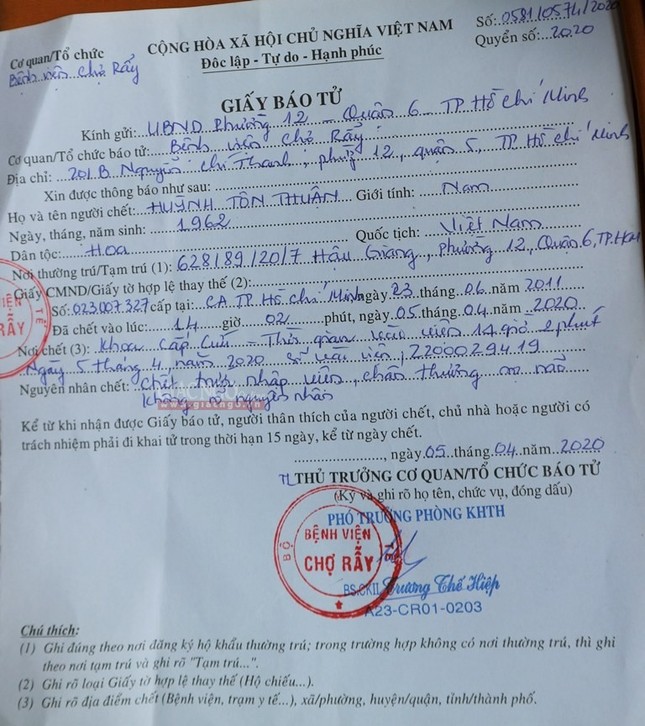 Cơ quan/Tổ chức
Bệnh viện Chợ Rẫy
CỘNG HÒA XÃ HỘI CHỦ NGHĨA VIỆT NAM
Độc lập - Tự do - Hạnh phúc
Số: 0581/0574/2020
Quyển số: 2020
GIẤY BÁO TỬ
Kính gửi: UBND Phường 12 - Quận 6 - TP. Hồ Chí Minh
Cơ quan/Tổ chức báo tử: Bệnh viện Chợ Rẫy
Địa chỉ: 201B Nguyễn Chí Thanh, phường 12, quận 5, TP Hồ Chí Minh
Xin được thông báo như sau:
Họ và tên người chết: HUỲNH TÔN THUẬN Giới tính: Nam
Ngày, tháng, năm sinh: 1962
Dân tộc: Hoa Quốc tịch: Việt Nam
Nơi thường trú/Tạm trú (1): 628/89/20/7 Hậu Giang, Phường 12, Quận 6, TP.HCM
Giấy CMND/Giấy tờ hợp lệ thay thế (2):
Số: 023007327 cấp tại: CA TP Hồ Chí Minh ngày 23 tháng 06 năm 2011
Đã chết vào lúc: 14 giờ 02 phút, ngày 05 tháng 04 năm 2020
Nơi chết (3): Khoa Cấp Cứu - Thời gian vào viện 14 giờ 2 phút
Ngày 5 tháng 4 năm 2020 số vào viện, 2200029419
Nguyên nhân chết: Chết trước nhập viện, chấn thương sọ não
không rõ nguyên nhân
www.giacngo.vn
Kể từ khi nhận được Giấy báo tử, người thân thích của người chết, chủ nhà hoặc người có
trách nhiệm phải đi khai tử trong thời hạn 15 ngày, kể từ ngày chết.
, ngày 05 tháng 04 năm 2020
TL THỦ TRƯỞNG CƠ QUAN/TỔ CHỨC BÁO TỬ
(Ký và ghi rõ họ tên, chức vụ, đóng dấu)
PHÓ TRƯỞNG PHÒNG KHTH
BỆNH VIỆN
CHỢ RẪY
BS.CKII Trương Thế Hiệp
A23-CR01-0203
Chú thích:
(1) Ghi đúng theo nơi đăng ký hộ khẩu thường trú; trong trường hợp không có nơi thường trú, thì ghi
theo nơi tạm trú và ghi rõ "Tạm trú...".
(2) Ghi rõ loại Giấy tờ hợp lệ thay thế (Hộ chiếu...).
(3) Ghi rõ địa điểm chết (Bệnh viện, trạm y tế...), xã/phường, huyện/quận, tỉnh/thành phố.